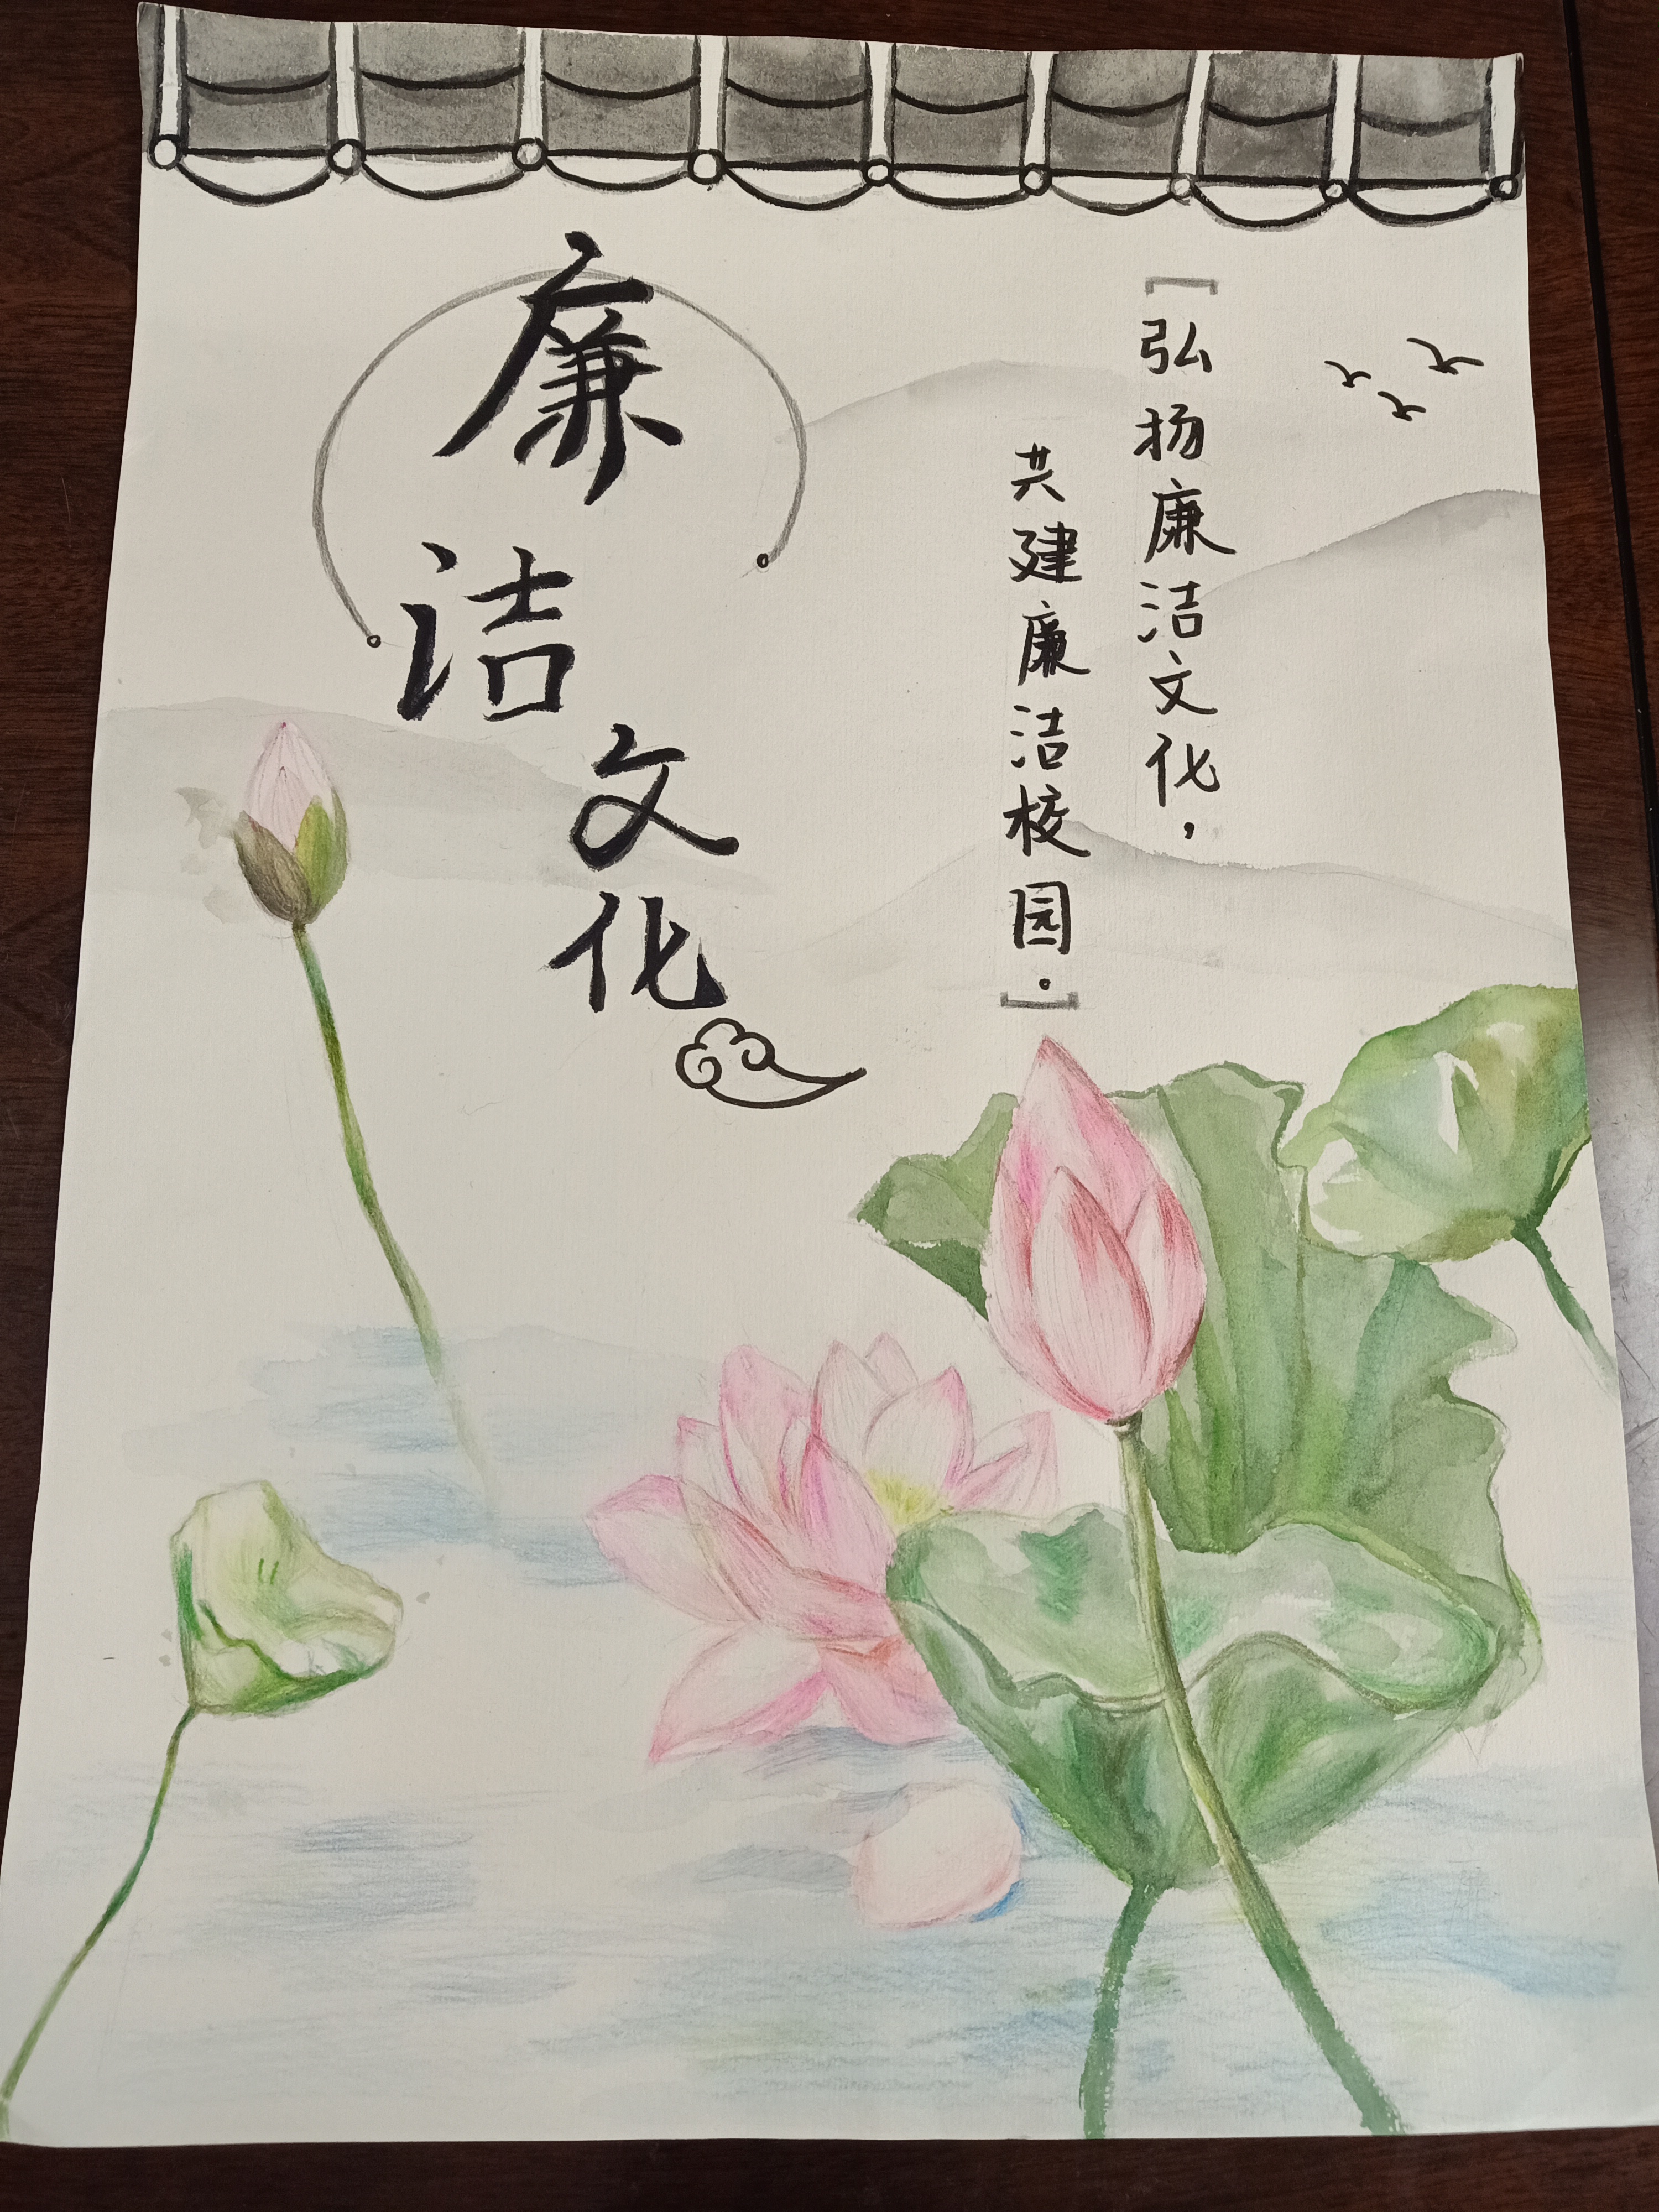 廉洁文化
[弘扬廉洁文化，
共建廉洁校园。]